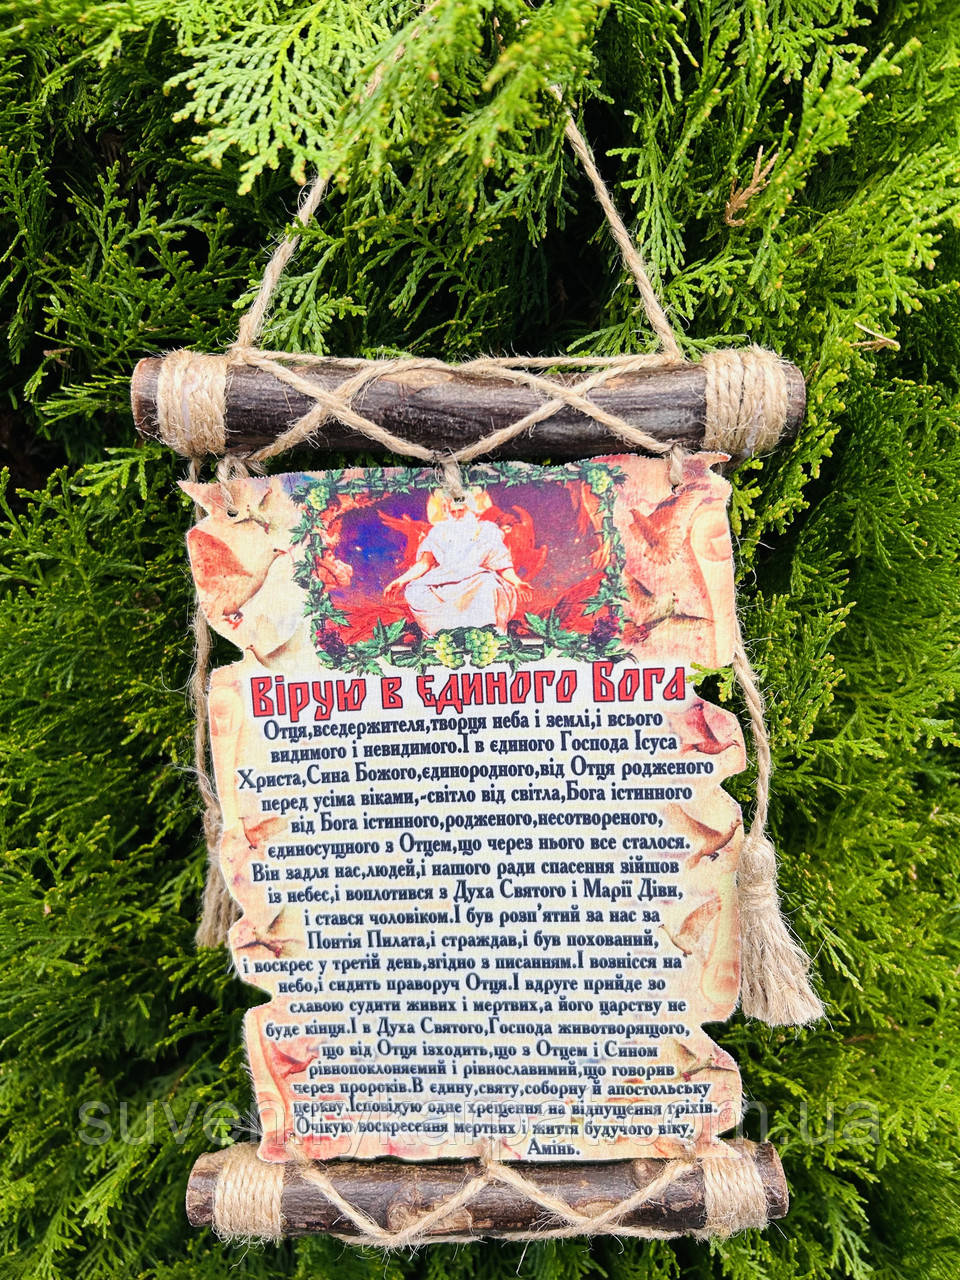 Вірую в Єдиного Бога
Отця,вседержителя,творця неба і землі,і всього
видимого і невидимого.І в єдиного Господа Ісуса
Христа,Сина Божого,єдинородного,від Отця родженого
перед усіма віками,-світло від світла,Бога істинного
від Бога істинного,родженого,несотвореного,
єдиносущного з Отцем,що через нього все сталося.
Він задля нас,людей,і нашого ради спасення зійшов
із небес,і воплотився з Духа Святого і Марії Діви,
і стався чоловіком.І був розп'ятий за нас за
Понтія Пилата,і страждав,і був похований,
і воскрес у третій день,згідно з писанням.І вознісся на
небо,і сидить праворуч Отця.І вдруге прийде зо
славою судити живих і мертвих,а його царству не
буде кінця.І в Духа Святого,Господа животворящого,
що від Отця ізходить,що з Отцем і Сином
рівнопоклоняємий і рівнославимий,що говорив
через пророків.В єдину,святу,соборну й апостольську
церкву.Ісповідую одне хрещення на відпущення гріхів.
Очікую воскресення мертвих і життя будучого віку.
Амінь.
suvenirykarpat.com.ua